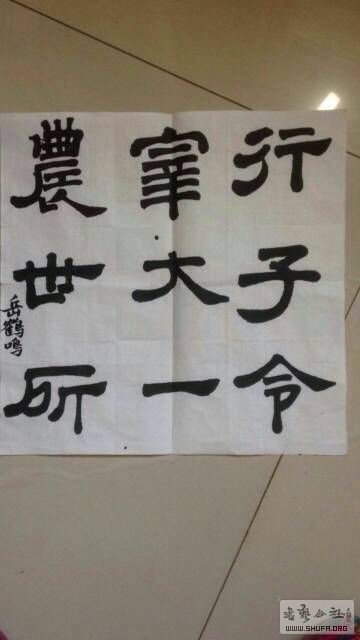 行子令
宰大一
農世所
岳鶴鳴
書藝公社
WWW.SHUFA.ORG